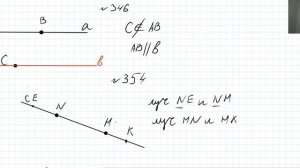 №346
B a
C ∉ AB
AB || b
C b
№354
C E N
M K
луч NE и NM
луч MN и MK